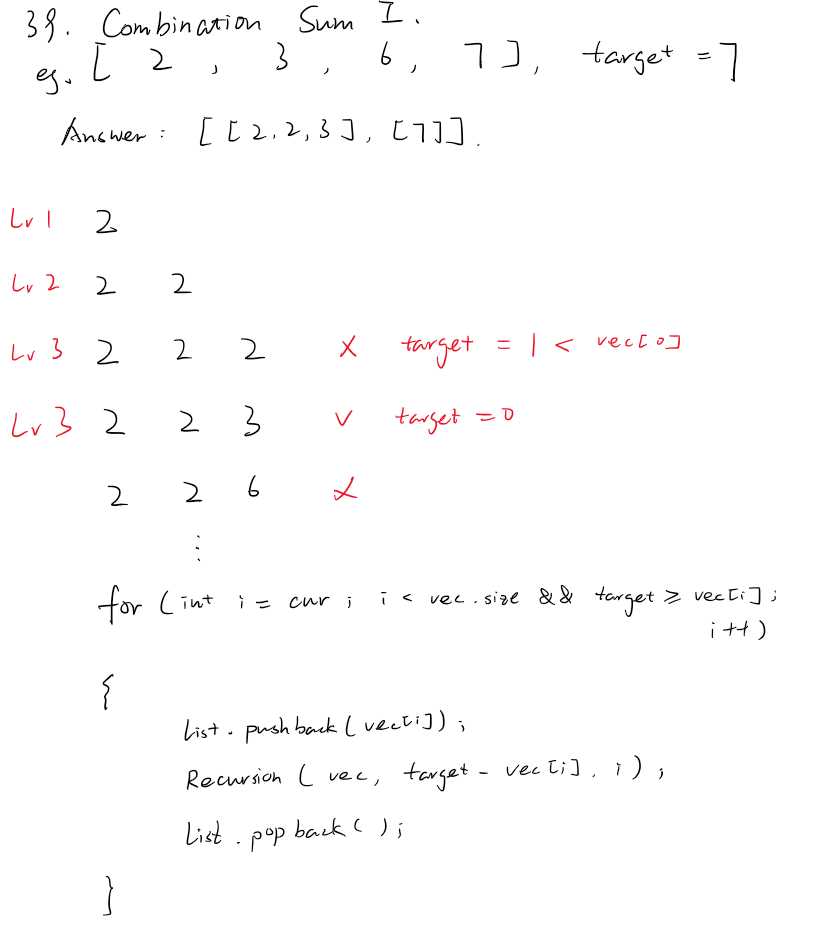 39. Combination Sum I.
eg. [ 2 , 3 , 6 , 7 ], target = 7
Answer : [ [ 2, 2, 3 ], [7]].
Lv 1 2
Lv 2 2 2
Lv 3 2 2 2 × target = 1 < vec[0]
Lv 3 2 2 3 v target = 0
2 2 6 ×
⋮
for ( int i = cur ; i < vec.size && target ≥ vec[i] ;
i++)
{
List . pushback ( vec[i]) ;
Recursion ( vec, target - vec[i], i ) ;
List . popback ( ) ;
}